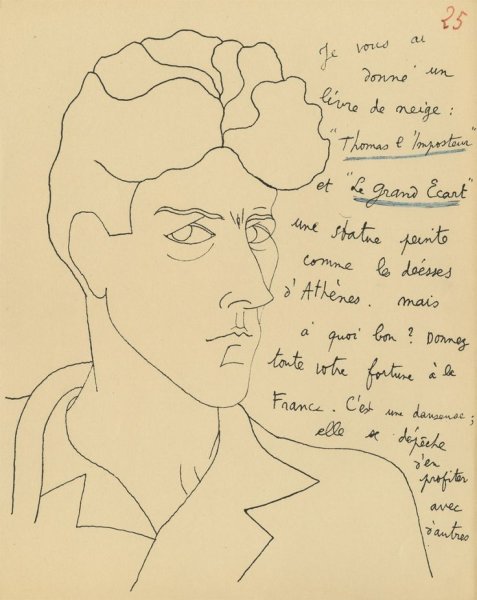 25
Je vous ai
donné un
livre de neige :
"Thomas l'Imposteur"
et "Le Grand Ecart"
une statue peinte
comme les déesses
d'Athènes. mais
à quoi bon ? Donnez
toute votre fortune à la
France. C'est une danseuse ;
elle se dépêche
d'en
profiter
avec
d'autres